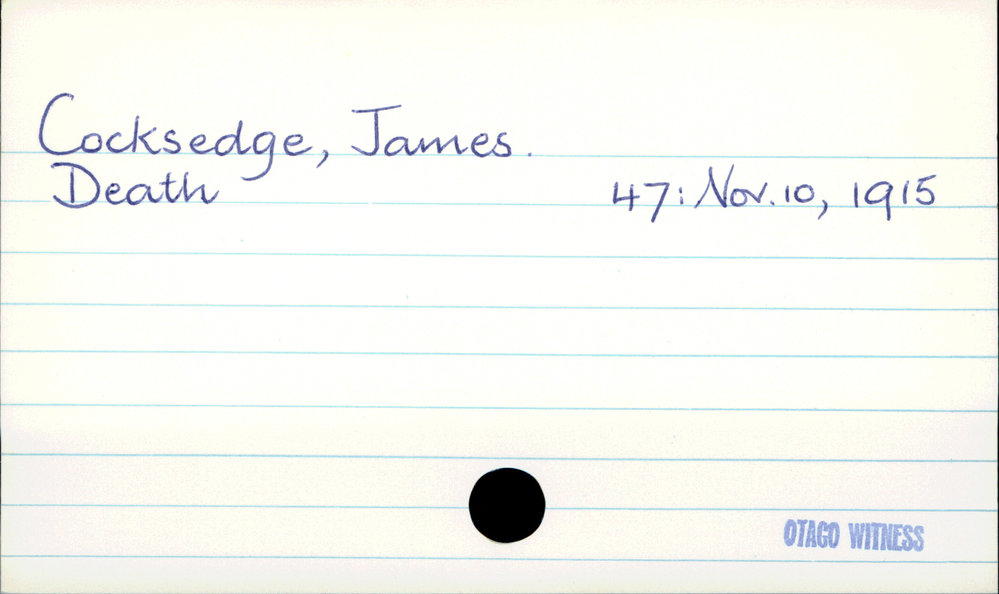 Cocksedge, James.
Death 47: Nov. 10, 1915
OTAGO WITNESS